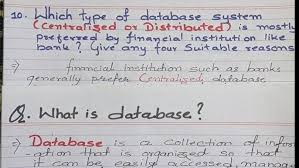 10. Which type of database system
(Centralized or Distributed) is mostly
preferred by financial institution like
bank ? Give any four Suitable reasons
→ financial institution such as banks
generally prefer Centralized database
Q. What is database?
⇒ Database is a collection of infor
-ation that is organized so that
it can be easily accessed, manag